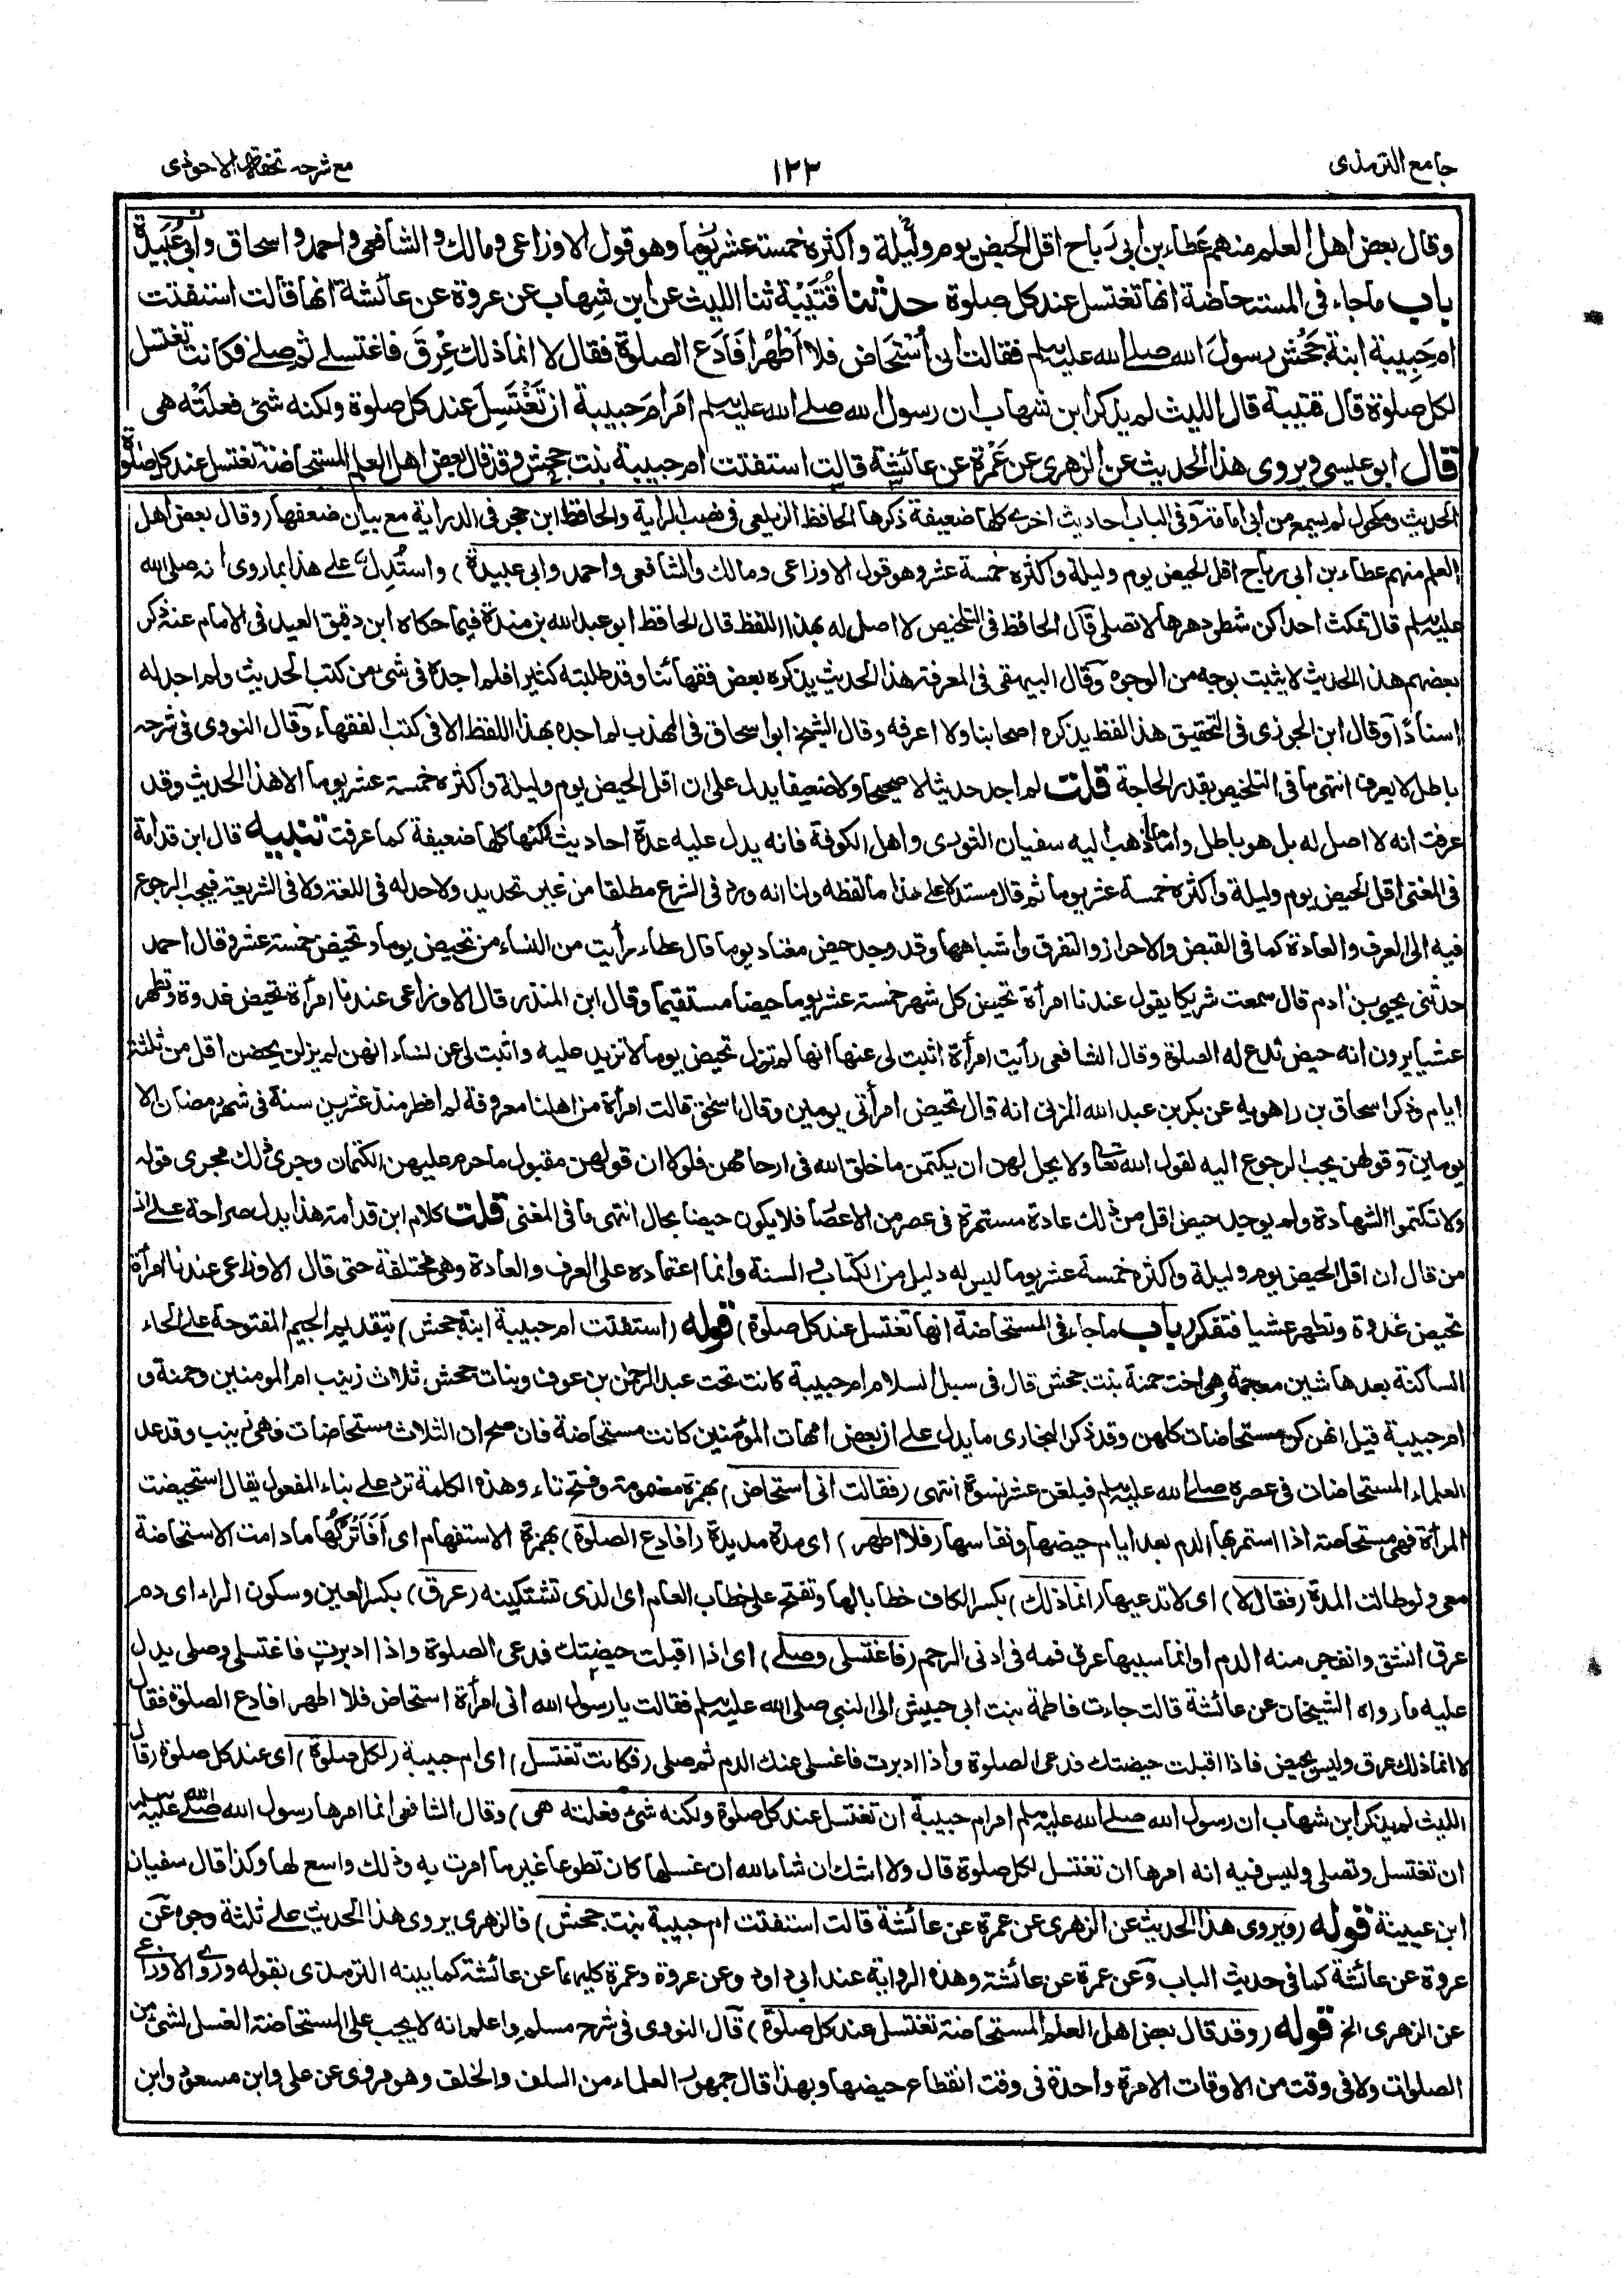 جامع الترمذي
١٢٣
مع شرحه تحفة الاحوذي
وقال بعض اهل العلم منهم عَطاء بن ابي رَباح اقل الحيض يوم وليلة واكثره خمسة عشر يوما وهو قول الاوزاعي ومالك والشافعي واحمد واسحاق وابي عُبَيدة
باب ما جاء في المستحاضة انها تغتسل عند كل صلوة حدثنا قُتَيْبَة ثنا الليث عن ابن شِهاب عن عروة عن عائشة انها قالت استفتت
ام حَبِيبة ابنة جَحْش رسولَ الله صلى الله عليه وسلم فقالت اني اُسْتَحَاض فلا اَطْهُر اَفَاَدَع الصلوة فقال لا انما ذلك عِرْق فاغتسلي ثم صلي فكانت تغتسل
لكل صلوة قال قتيبة قال الليث لم يذكر ابن شهاب ان رسول الله صلى الله عليه وسلم اَمَر ام حَبيبة ان تَغْتَسِل عند كل صلوة ولكنه شئ فعلَتْه هي
قال ابو عيسى ويروى هذا الحديث عن الزهري عن عَمْرة عن عائشة قالت استفتت ام حبيبة بنت جحش وقد قال بعض اهل العلم المستحاضة تغتسل عند كل صلوة
الحديث ومكحول لم يسمع من ابي امامة وفي الباب احاديث اخرى كلها ضعيفة ذكرها الحافظ الزيلعي في نصب الراية والحافظ ابن حجر في الدراية مع بيان ضعفها (وقال بعض اهل
العلم منهم عطاء بن ابي رباح اقل الحيض يوم وليلة واكثره خمسة عشر وهو قول الاوزاعي ومالك والشافعي واحمد وابي عبيدة) واستُدِل على هذا بما روى انه صلى الله
عليه وسلم قال تمكث احداكن شطر دهرها لا تصلي قال الحافظ في التلخيص لا اصل له بهذا اللفظ قال الحافظ ابو عبد الله بن مندة فيما حكاه ابن دقيق العيد في الامام عنه ذكر
بعضهم هذا الحديث لا يثبت بوجه من الوجوه وقال البيهقي في المعرفة هذا الحديث يذكره بعض فقهائنا وقد طلبته كثيرا فلم اجده في شئ من كتب الحديث ولم اجد له
اسنادًا وقال ابن الجوزي في التحقيق هذا لفظ يذكره اصحابنا ولا اعرفه وقال الشيخ ابو اسحاق في المهذب لم اجده بهذا اللفظ الا في كتب الفقهاء وقال النووي في شرحه
باطل لا يعرف انتهى ما في التلخيص بقدر الحاجة قلت لم اجد حديثا لا صحيحا ولا ضعيفا يدل على ان اقل الحيض يوم وليلة واكثره خمسة عشر يوما الا هذا الحديث وقد
عرفت انه لا اصل له بل هو باطل واما ما ذهب اليه سفيان الثوري واهل الكوفة فانه يدل عليه عدة احاديث لكنها كلها ضعيفة كما عرفت تنبيه قال ابن قدامة
في المغني اقل الحيض يوم وليلة واكثره خمسة عشر يوما ثم قال مستدلا على هذا ما لفظه ولنا انه ورد في الشرع مطلقا من غير تحديد ولا حد له في اللغة ولا في الشريعة فيجب الرجوع
فيه الى العرف والعادة كما في القبض والاحراز والتفرق واشباهها وقد وجد حيض معتاد يوما قال عطاء رأيت من النساء من تحيض يوما وتحيض خمسة عشر وقال احمد
حدثني يحيى بن ادم قال سمعت شريكا يقول عندنا امرأة تحيض كل شهر خمسة عشر يوما حيضا مستقيما وقال ابن المنذر قال الاوزاعي عندنا امرأة تحيض غدوة وتطهر
عشيا يرون انه حيض تدع له الصلوة وقال الشافعي رأيت امرأة اثبت لي عنها انها لم تزل تحيض يوما لا تزيد عليه واثبت لي عن نساء انهن لم يزلن يحضن اقل من ثلثة
ايام وذكر اسحاق بن راهويه عن بكر بن عبد الله المزني انه قال تحيض امرأتي يومين وقال اسحق قالت امرأة من اهلنا معروفة لم افطر منذ عشرين سنة في شهر رمضان الا
يومين وقولهن يجب الرجوع اليه لقول الله تعالى ولا يحل لهن ان يكتمن ما خلق الله في ارحامهن فلولا ان قولهن مقبول ما حرم عليهن الكتمان وجرى ذلك مجرى قوله
ولا تكتموا الشهادة ولم يوجد حيض اقل من ذلك عادة مستمرة في عصر من الاعصار فلا يكون حيضا بحال انتهى ما في المغني قلت كلام ابن قدامة هذا يدل صراحة على ان
من قال ان اقل الحيض يوم وليلة واكثره خمسة عشر يوما ليس له دليل من الكتاب والسنة وانما اعتماده على العرف والعادة وهي مختلفة حتى قال الاوزاعي عندنا امرأة
تحيض غدوة وتطهر عشيا فتفكر باب ما جاء في المستحاضة انها تغتسل عند كل صلوة) قوله (استفتت ام حبيبة ابنة جحش) بتقديم الجيم المفتوحة على الحاء
الساكنة بعدها شين معجمة وهي اخت حمنة بنت جحش قال في سبل السلام ام حبيبة كانت تحت عبد الرحمن بن عوف وبنات جحش ثلاث زينب ام المومنين وحمنة و
ام حبيبة قيل انهن كن مستحاضات كلهن وقد ذكر البخاري ما يدل على ان بعض امهات المؤمنين كانت مستحاضة فان صح ان الثلاث مستحاضات فهي زينب وقد عد
العلماء المستحاضات في عصره صلى الله عليه وسلم فبلغن عشر نسوة انتهى (فقالت اني استحاض) بهمزة مضمومة وفتح تاء وهذه الكلمة ترد على بناء المفعول يقال استحيضت
المرأة فهي مستحاضة اذا استمر بها الدم بعد ايام حيضها ونفاسها (فلا اطهر) اى مدة مديدة (افادع الصلوة) بهمزة الاستفهام اى اَفَاَتْرُكُها ما دامت الاستحاضة
معي ولو طالت المدة (فقال لا) اى لا تدعيها (انما ذلك) بكسر الكاف خطابا لها وتفتح على خطاب العام اى الذي تشتكينه (عرق) بكسر العين وسكون الراء اى دم
عرق انشق وانفجر منه الدم او انما سببها عرق فمه في ادنى الرحم (فاغتسلي وصلي) اى اذا اقبلت حيضتك فدعى الصلوة واذا ادبرت فاغتسلي وصلي يدل
عليه ما رواه الشيخان عن عائشة قالت جاءت فاطمة بنت ابي حبيش الى النبي صلى الله عليه وسلم فقالت يا رسول الله اني امرأة استحاض فلا اطهر افادع الصلوة فقال
لا انما ذلك عرق وليس بحيض فاذا اقبلت حيضتك فدعى الصلوة واذا ادبرت فاغسلي عنك الدم ثم صلي (فكانت تغتسل) اى ام حبيبة (لكل صلوة) اى عند كل صلوة (قال
الليث لم يذكر ابن شهاب ان رسول الله صلى الله عليه وسلم امر ام حبيبة ان تغتسل عند كل صلوة ولكنه شئ فعلته هي) وقال الشافعي انما امرها رسول الله صلى الله عليه وسلم
ان تغتسل وتصلي وليس فيه انه امرها ان تغتسل لكل صلوة قال ولا اشك ان شاء الله ان غسلها كان تطوعا غير ما امرت به وذلك واسع لها وكذا قال سفيان
ابن عيينة قوله (ويروى هذا الحديث عن الزهري عن عمرة عن عائشة قالت استفتت ام حبيبة بنت جحش) فالزهري يروي هذا الحديث على ثلثة وجوه عن
عروة عن عائشة كما في حديث الباب وعن عمرة عن عائشة وهذه الرواية عند ابي داود وعن عروة وعمرة كليهما عن عائشة كما بينه الترمذي بقوله وروى الاوزاعي
عن الزهري الخ قوله (وقد قال بعض اهل العلم المستحاضة تغتسل عند كل صلوة) قال النووي في شرح مسلم واعلم انه لا يجب على المستحاضة الغسل لشئ من
الصلوات ولا في وقت من الاوقات الا مرة واحدة في وقت انقطاع حيضها وبهذا قال جمهور العلماء من السلف والخلف وهو مروي عن علي وابن مسعود وابن